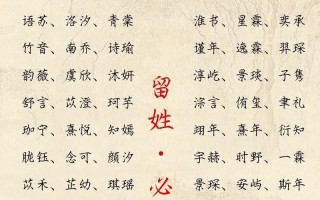 语苏、洛汐、青棠
竹音、南乔、诗瑜
韵薇、虞欣、沐妍
舒言、苡澄、珂芋
珈宁、熹悦、知嫣
胧钰、念可、颜汐
苡禾、芷幼、琪瑶
留姓·必
淮书、星霖、奕承
瑾年、逸霖、羿琛
淳屹、景琰、子隽
淙言、侑玺、聿礼
翊年、熹年、衍知
宇赫、时野、一霖
景琛、安屿、斯年